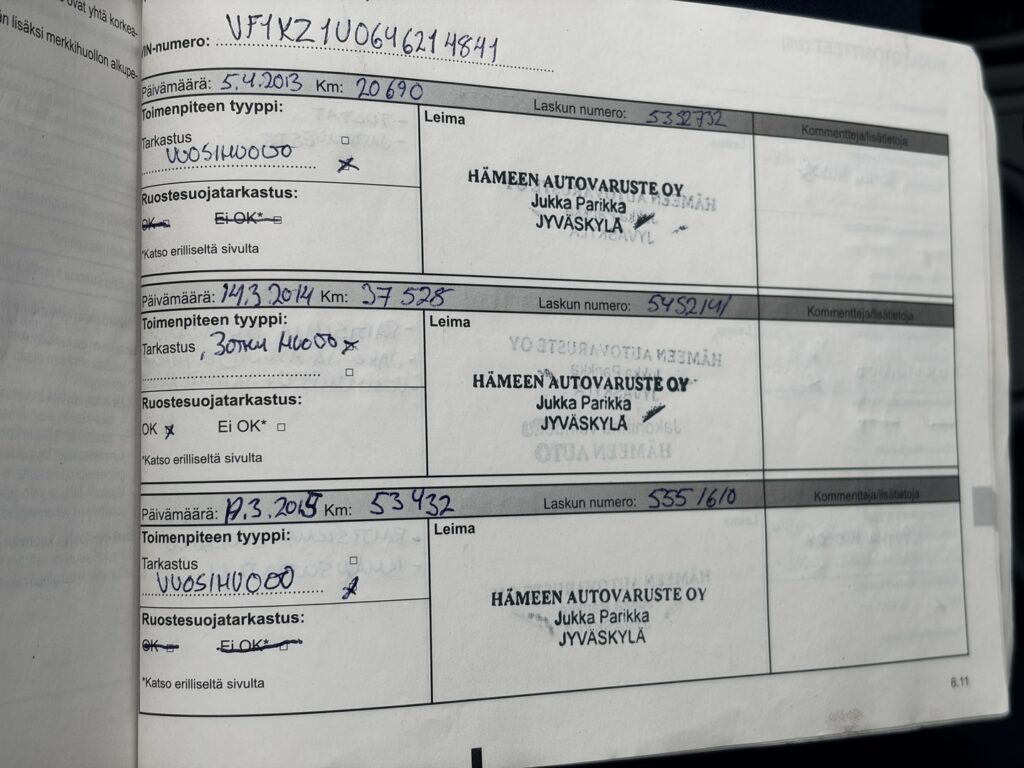 ovat yhtä korkea-
än lisäksi merkkihuollon alkupe-
VIN-numero: VF1KZ1U0646214841
Päivämäärä: 5.4.2013 Km: 20 690 Laskun numero: 5332732 Kommentteja/lisätietoja
Toimenpiteen tyyppi:
Leima
Tarkastus
VUOSIHUOLTO
HÄMEEN AUTOVARUSTE OY
Jukka Parikka
JYVÄSKYLÄ
Ruostesuojatarkastus:
OK Ei OK*
*Katso erilliseltä sivulta
Päivämäärä: 14.3.2014 Km: 37 528 Laskun numero: Kommentteja/lisätietoja
Toimenpiteen tyyppi:
Leima
Tarkastus
HÄMEEN AUTOVARUSTE OY
Jukka Parikka
JYVÄSKYLÄ
Ruostesuojatarkastus:
OK Ei OK*
*Katso erilliseltä sivulta
Päivämäärä: Km: 53 432 Laskun numero: 5551610 Kommentteja/lisätietoja
Toimenpiteen tyyppi:
Leima
Tarkastus
VUOSIHUOLTO
HÄMEEN AUTOVARUSTE OY
Jukka Parikka
JYVÄSKYLÄ
Ruostesuojatarkastus:
OK Ei OK*
*Katso erilliseltä sivulta
6.11